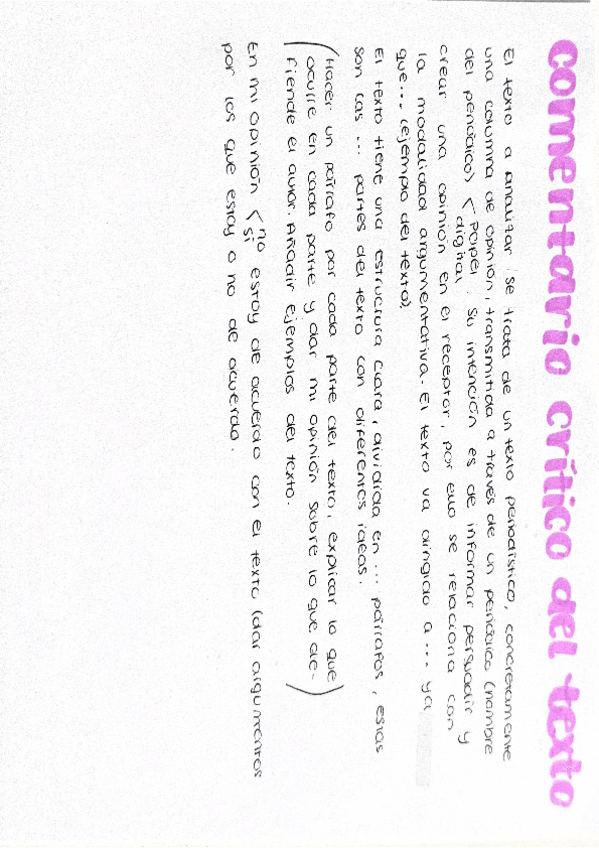 comentario crítico del texto
El texto a analizar, se trata de un texto periodístico, concretamente
una columna de opinión, transmitida a través de un periódico (nombre
del periódico) < papel
digital . Su intención es de informar persuadir y
crear una opinión en el receptor, por ello se relaciona con
la modalidad argumentativa. El texto va dirigido a ... ya
que... (ejemplo del texto).
El texto tiene una estructura clara, dividida en ... párrafos, estas
son las ... partes del texto con diferentes ideas.
(Hacer un párrafo por cada parte del texto, explicar lo que
ocurre en cada parte y dar mi opinión sobre lo que de-
fiende el autor. Añadir ejemplos del texto.)
En mi opinión < no
si estoy de acuerdo con el texto (dar argumentos
por los que estoy o no de acuerdo.